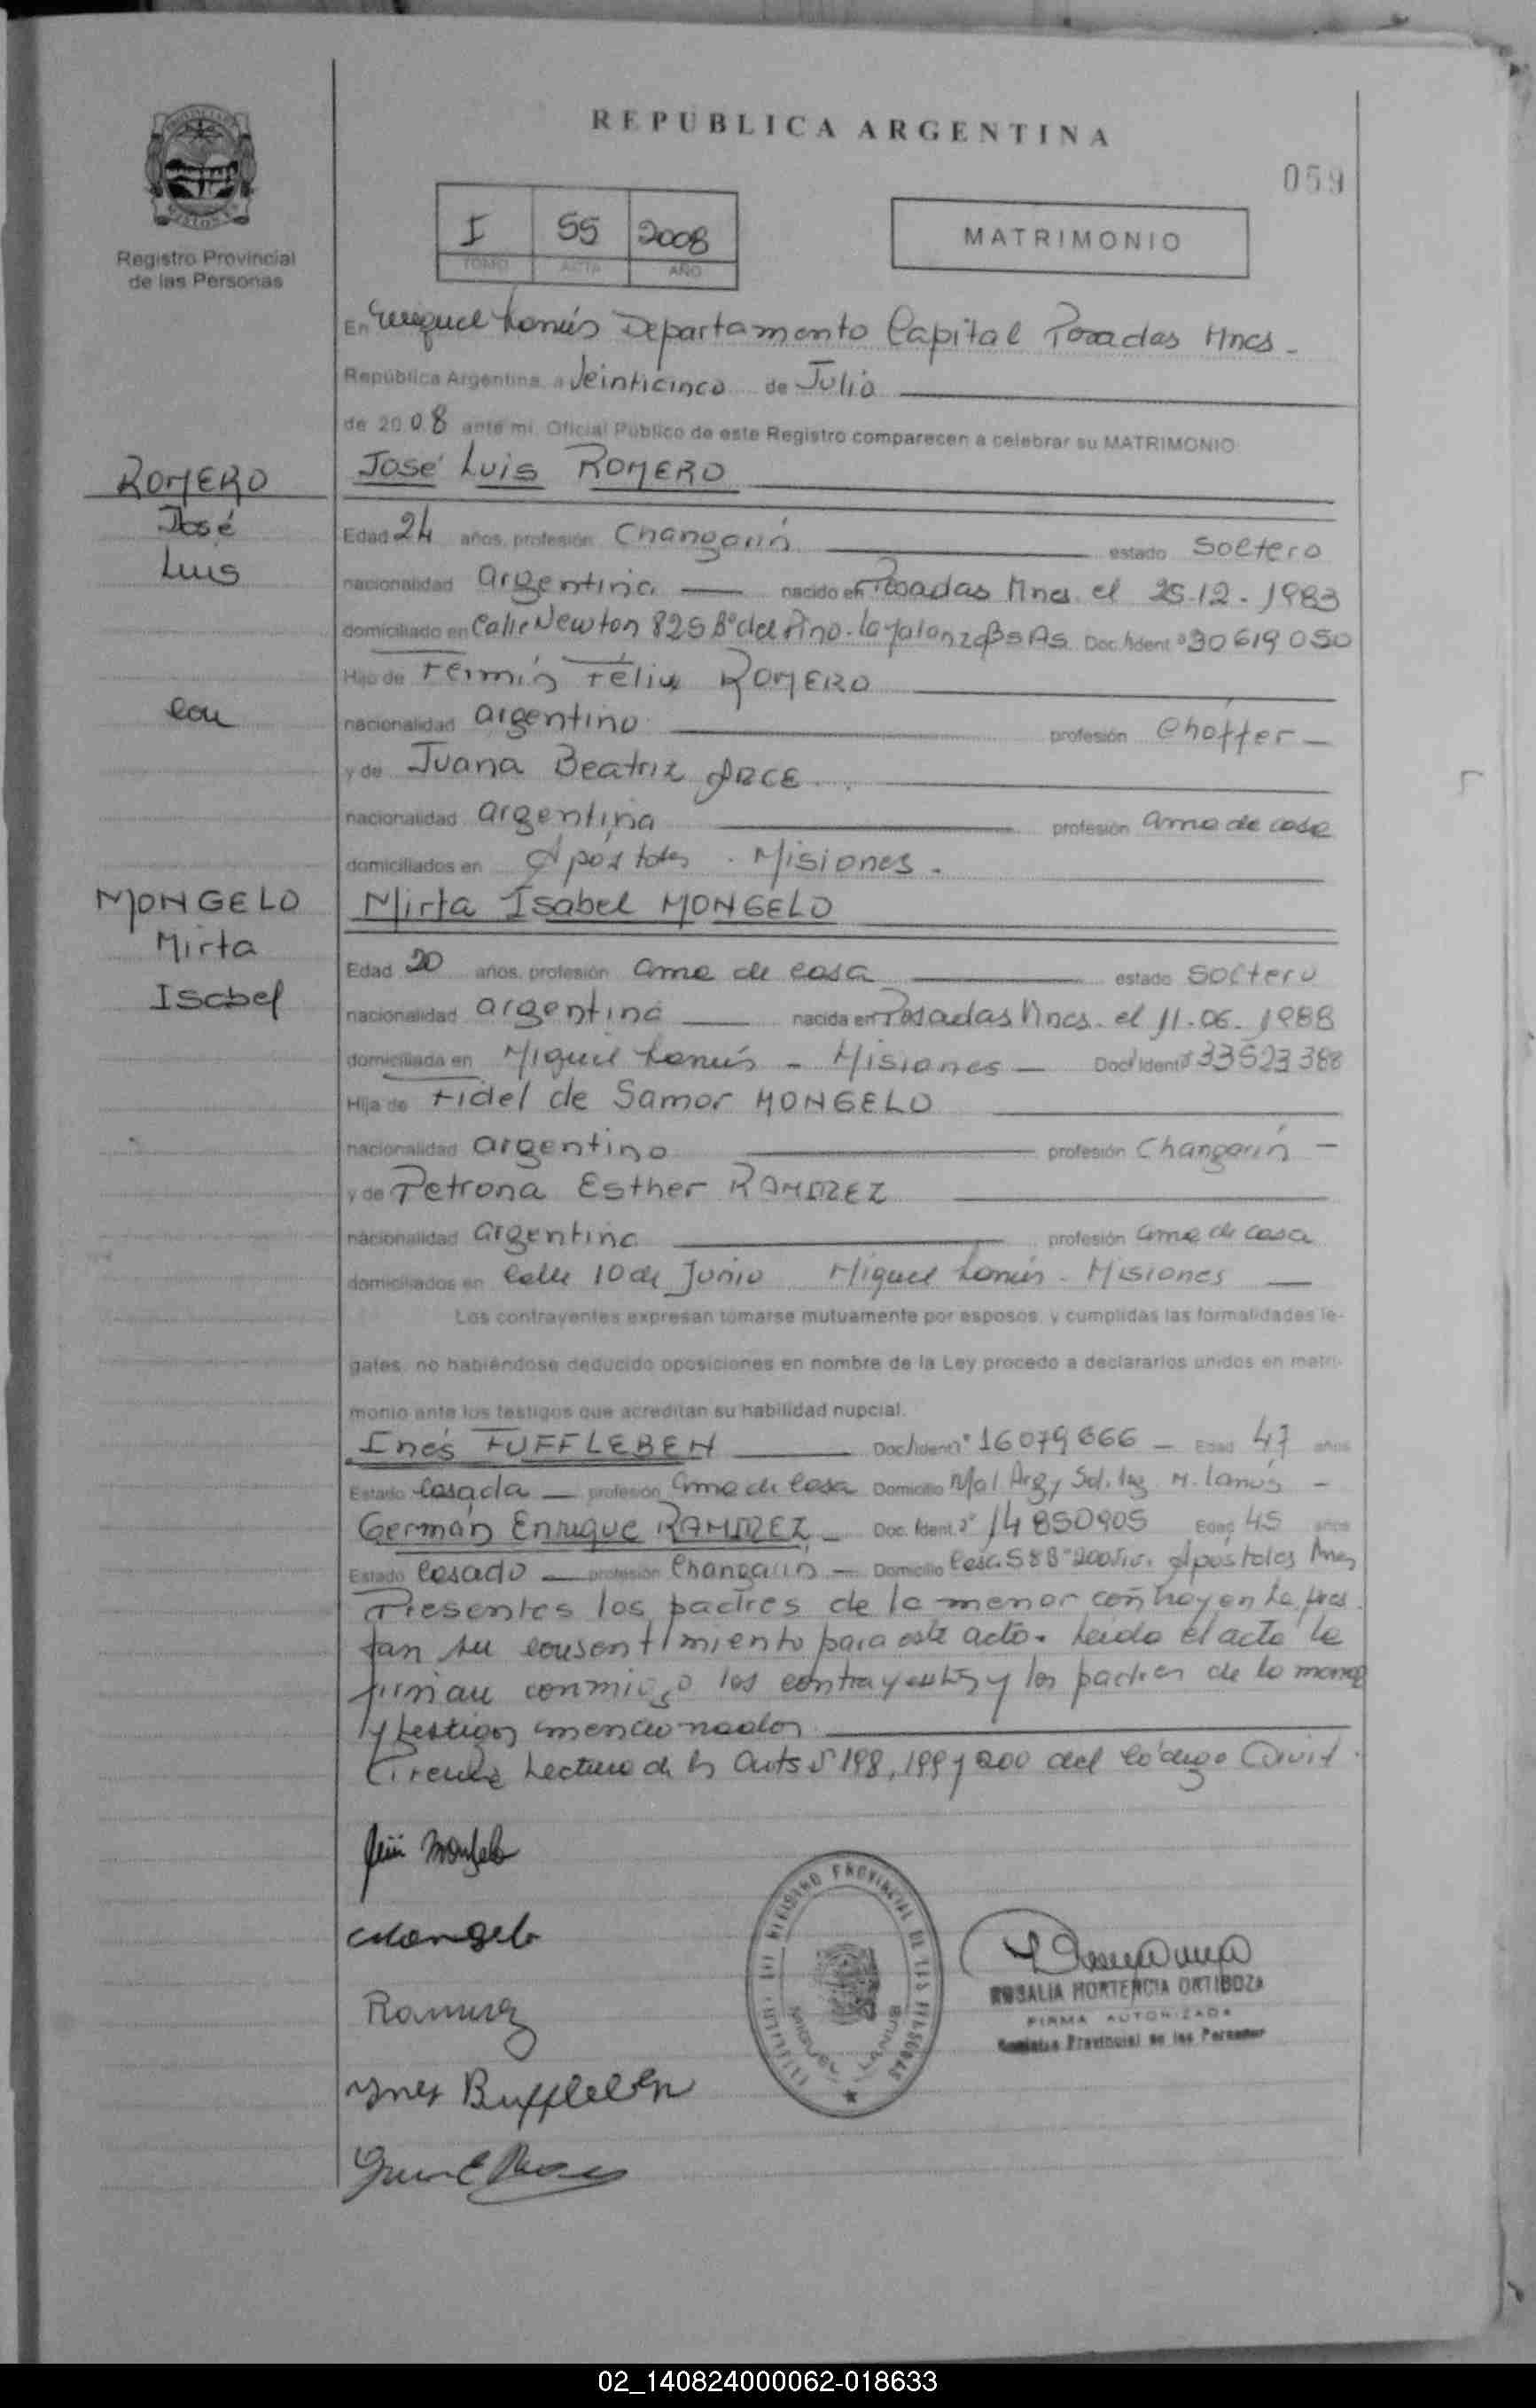 REPUBLICA ARGENTINA
059
Registro Provincial
de las Personas
I 55 2008
TOMO ACTA AÑO
MATRIMONIO
En Miguel Lanús Departamento Capital Posadas Mnes.
República Argentina, a Veinticinco de Julio
de 2008 ante mi, Oficial Público de este Registro comparecen a celebrar su MATRIMONIO
ROMERO
José
Luis
con
MONGELO
Mirta
Isabel
José Luis ROMERO
Edad 24 años, profesión Changarín estado Soltero
nacionalidad argentina nacido en Posadas Mnes. el 25.12.1983
domiciliado en Calle Newton 825 Bº del Pino. Bs As. Doc. Ident º 30619050
Hijo de Fermín Félix ROMERO
nacionalidad argentino profesión Choffer
y de Juana Beatriz ARCE
nacionalidad argentina profesión ama de casa
domiciliados en Apóstoles. Misiones.
Mirta Isabel MONGELO
Edad 20 años, profesión ama de casa estado Soltera
nacionalidad argentina nacida en Posadas Mnes. el 11.06.1988
domiciliada en Miguel Lanús - Misiones Doc. Ident º 33523388
Hija de Fidel de Samor MONGELO
nacionalidad argentino profesión Changarín
y de Petrona Esther RAMIREZ
nacionalidad argentina profesión ama de casa
domiciliados en Calle 10 de Junio Miguel Lanús - Misiones
Los contrayentes expresan tomarse mutuamente por esposos, y cumplidas las formalidades le-
gales, no habiéndose deducido oposiciones en nombre de la Ley procedo a declararlos unidos en matri-
monio ante los testigos que acreditan su habilidad nupcial.
Inés FUFFLEBEN Doc. Ident º 16079666 Edad 47 años
Estado Casada profesión ama de casa Domicilio Arg y M. Lanús
Germán Enrique RAMIREZ Doc. Ident. º 14850905 Edad 45 años
Estado Casado profesión Changarín Domicilio Casa 58 Bº 200 Viv. Apóstoles Mnes
Presentes los padres de la menor contrayente pres
tan su consentimiento para este acto. Leída el acta la
firman conmigo los contrayentes y los padres de la menor
y testigos mencionados
Lectura de los Arts 198, 199 y 200 del Código Civil.
Mongelo
Mongelo
Ramirez
Ynes Buffleben
REGISTRO PROVINCIAL DE LAS PERSONAS
ROSALIA HORTENCIA ORTIGOZA
FIRMA AUTORIZADA
Registro Provincial de las Personas
02_140824000062-018633